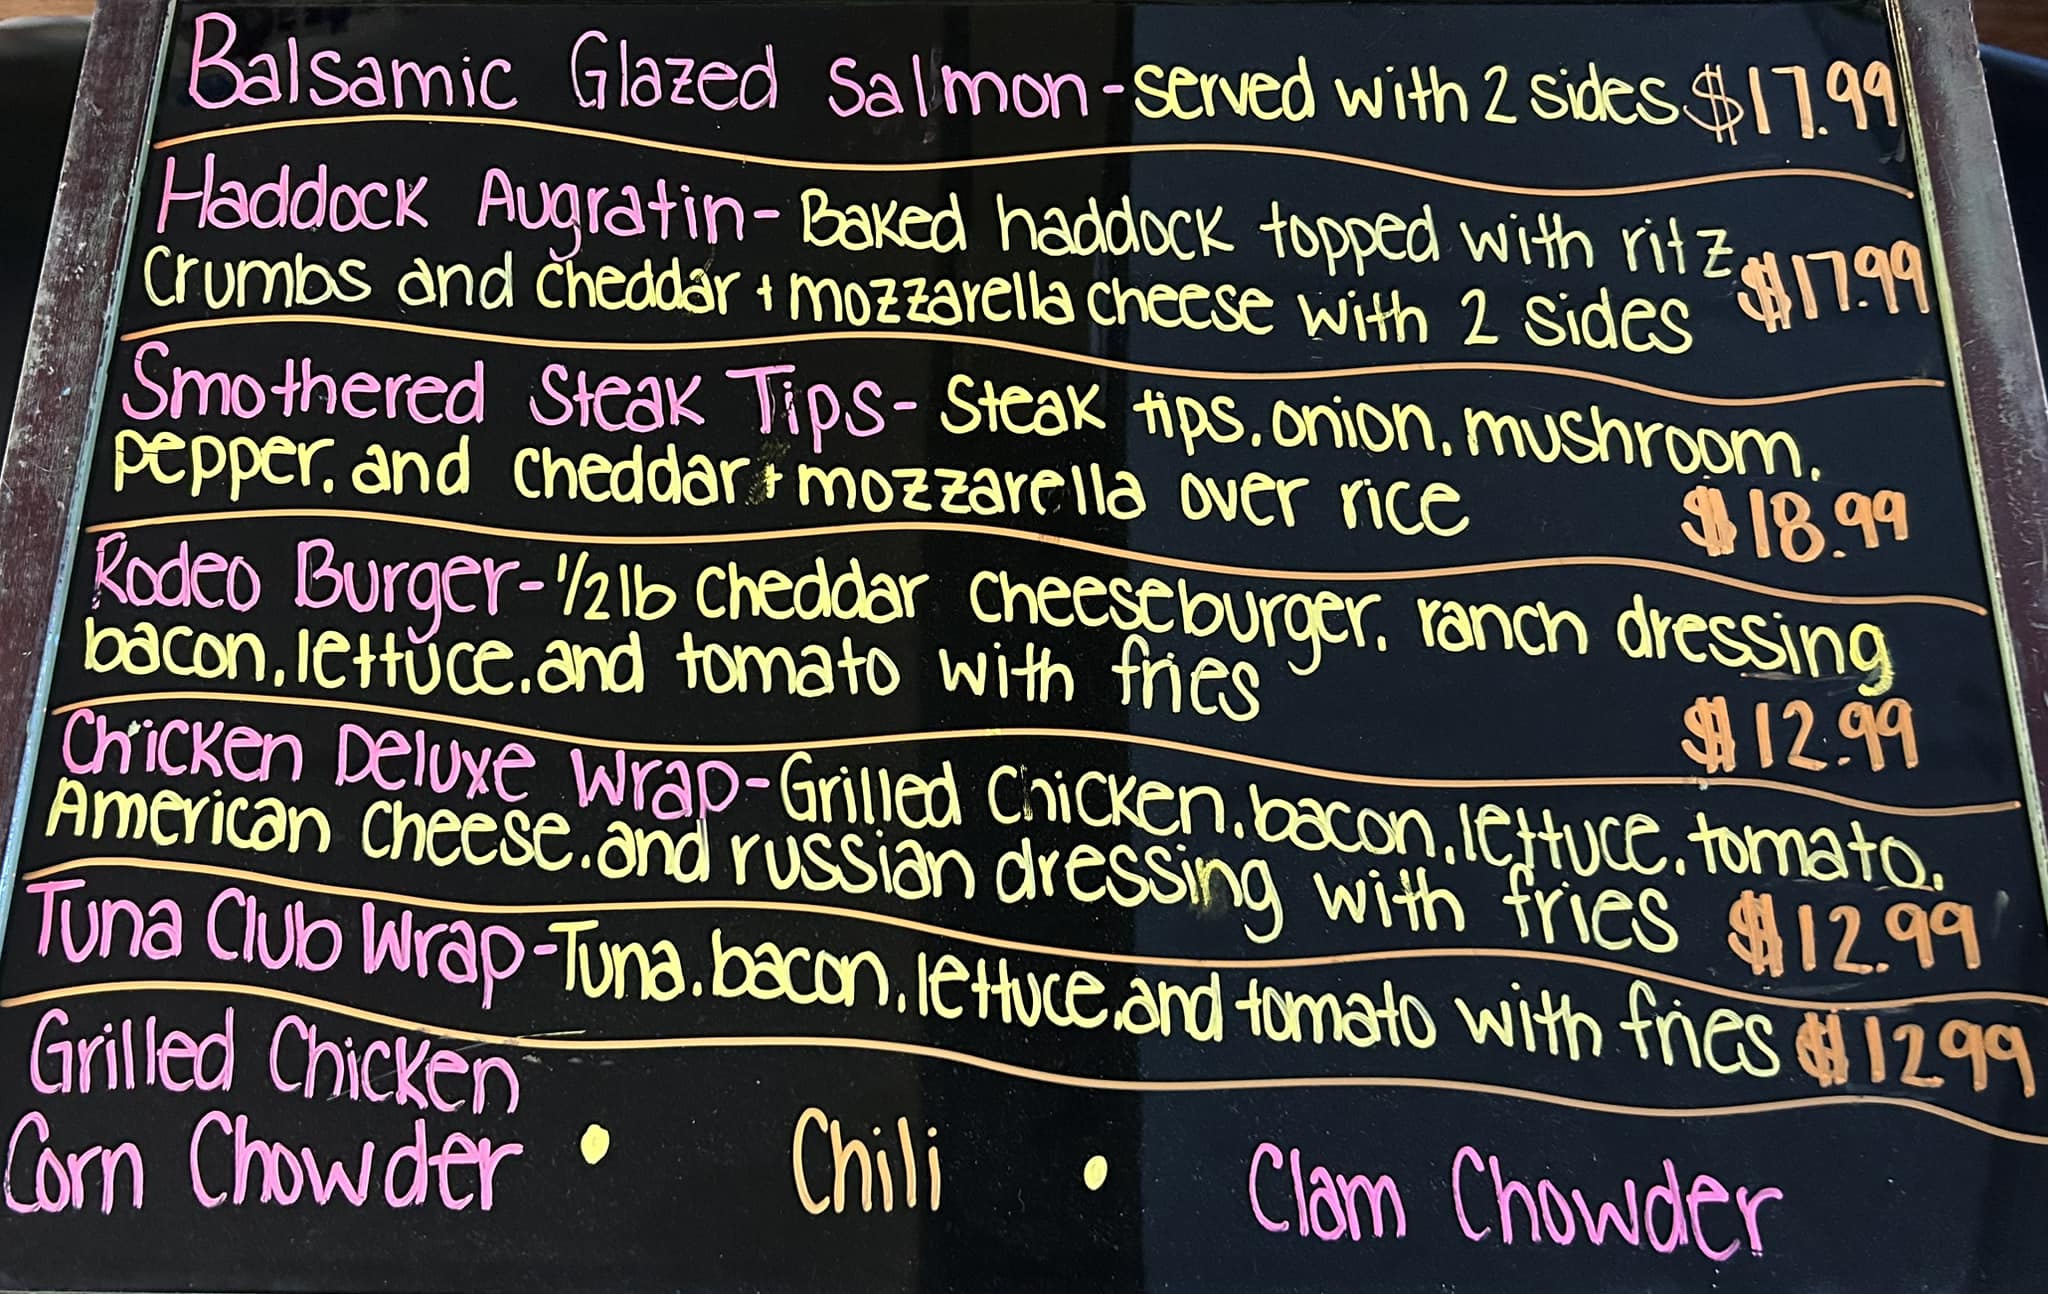 Balsamic Glazed Salmon - served with 2 sides $17.99
Haddock Augratin - Baked haddock topped with ritz
Crumbs and cheddar + mozzarella cheese with 2 sides $17.99
Smothered Steak Tips - Steak tips, onion, mushroom,
pepper, and cheddar + mozzarella over rice $18.99
Rodeo Burger - 1/2 lb cheddar cheeseburger, ranch dressing
bacon, lettuce, and tomato with fries $12.99
Chicken Deluxe Wrap - Grilled Chicken, bacon, lettuce, tomato,
American Cheese, and russian dressing with fries $12.99
Tuna Club Wrap - Tuna, bacon, lettuce, and tomato with fries $12 99
Grilled Chicken
Corn Chowder • Chili • Clam Chowder